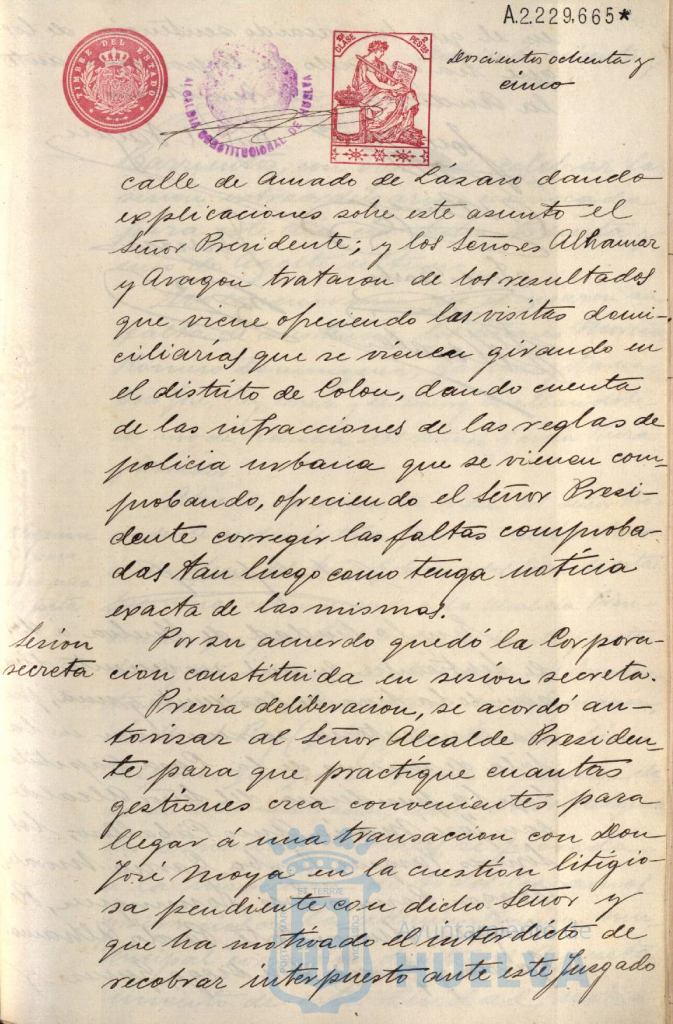 A.2.229.665*
TIMBRE DEL ESTADO
ALCALDIA CONSTITUCIONAL DE HUELVA
CLASE
PESETAS
Doscientos ochenta y
cinco
calle de Amado de Lázaro dando
explicaciones sobre este asunto el
Señor Presidente; y los Señores Alhamar
y Aragon trataron de los resultados
que viene ofreciendo las visitas domi-
ciliarias que se vienen girando en
el distrito de Colon, dando cuenta
de las infracciones de las reglas de
policia urbana que se vienen com-
probando, ofreciendo el Señor Presi-
dente corregir las faltas comproba-
das tan luego como tenga noticia
exacta de las mismas.
Sesion
secreta
Por su acuerdo quedó la Corpora-
cion constituida en sesión secreta.
Previa deliberacion, se acordó au-
torizar al Señor Alcalde Presiden-
te para que practique cuantas
gestiones crea convenientes para
llegar á una transaccion con Don
José Moya en la cuestión litigio-
sa pendiente con dicho Señor y
que ha motivado el interdicto de
recobrar interpuesto ante este Juzgado
Ayuntamiento de
HUELVA